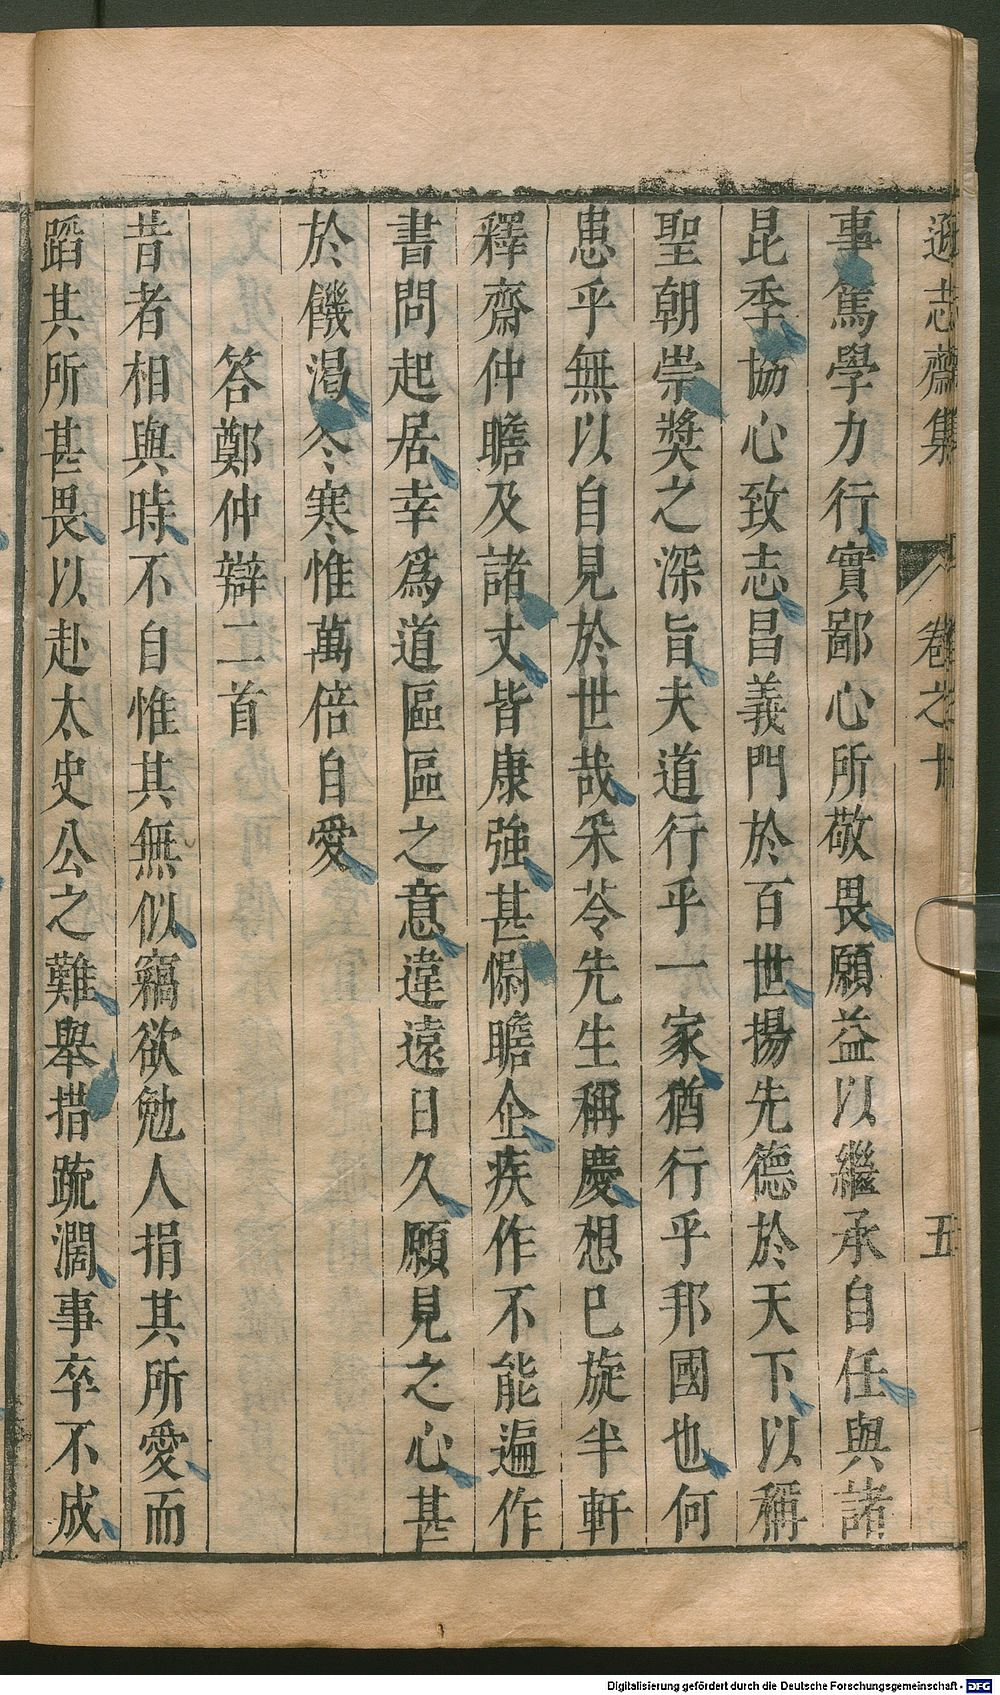 遜志齋集 卷之十 五
事篤學力行實鄙心所敬畏願益以繼承自任與諸
昆季協心致志昌義門於百世揚先德於天下以稱
聖朝崇奬之深旨夫道行乎一家猶行乎邦國也何
患乎無以自見於世哉采苓先生稱慶想已旋半軒
釋齋仲瞻及諸丈皆康強甚愜瞻企疾作不能遍作
書問起居幸爲道區區之意違遠日久願見之心甚
於饑渴冬寒惟萬倍自愛
答鄭仲辯二首
昔者相與時不自惟其無似竊欲勉人捐其所愛而
蹈其所甚畏以赴太史公之難舉措踈濶事卒不成
Digitalisierung gefördert durch die Deutsche Forschungsgemeinschaft - DFG